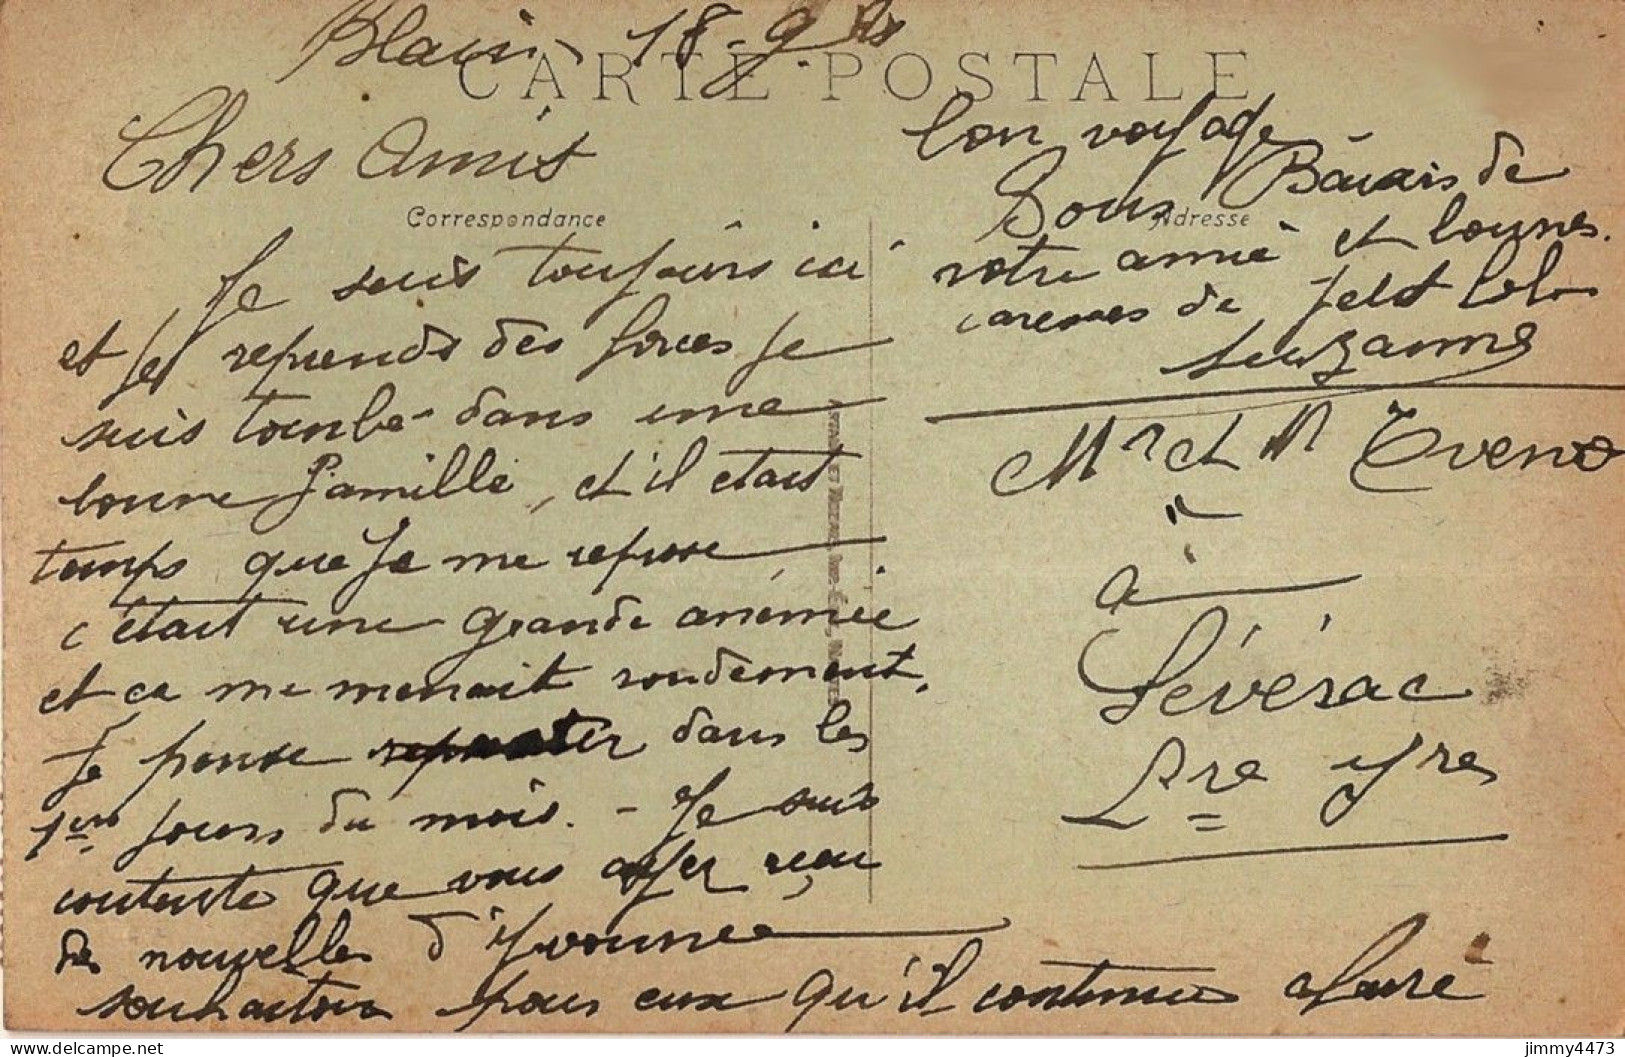 Blain, 18-9
CARTE POSTALE
Chers Amis
Correspondance
Je suis toujours ici
et je reprends des forces je
suis tombé dans une
bonne famille, et il était
temps que je me repose
c'était une grande anémie
et ca me menait rondement.
Je pense dans les
1ers jours du mois. - Je suis
contente que vous ayez reçu
des nouvelles d'Yvonne
souhaitons pour eux qu'il continue
bon voyage
Adresse
Bous Baisais de
votre amie et bonnes
caresses de petit Lolo
Suzanne
Mr et M Eveno
à
Sévérac
Lre Ire
jimmy4473